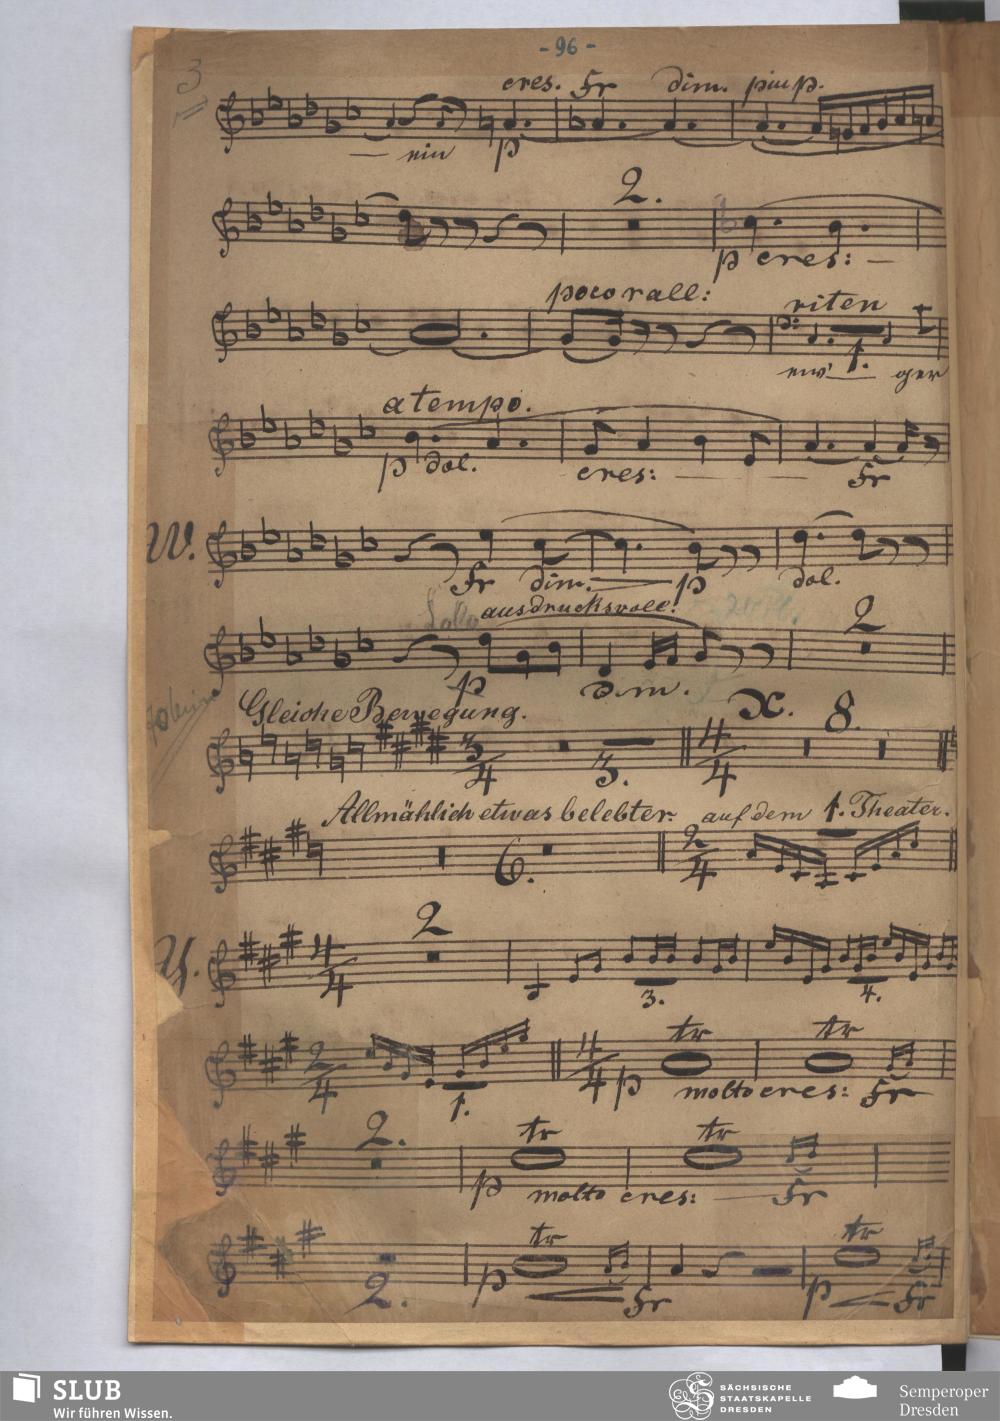 - 96 -
3
cres. Fr dim. piu p.
ein p
2.
p cres: —
poco rall:
riten
1.
ger
a tempo.
p dol. cres: Fr
W.
Fr dim. p dol.
Solo ausdrucksvoll!
2
p dim.
Gleiche Bewegung.
X. 8.
3/4 3. 4/4
Allmählich etwas belebter auf dem Theater.
1.
6. 2/4
Y. 4/4 2
3. 4.
2/4 4/4 tr tr
1. p molto cres: Fr
2. tr tr
p molto cres: Fr
tr tr
2. p Fr p Fr
SLUB
Wir führen Wissen.
SÄCHSISCHE
STAATSKAPELLE
DRESDEN
Semperoper
Dresden